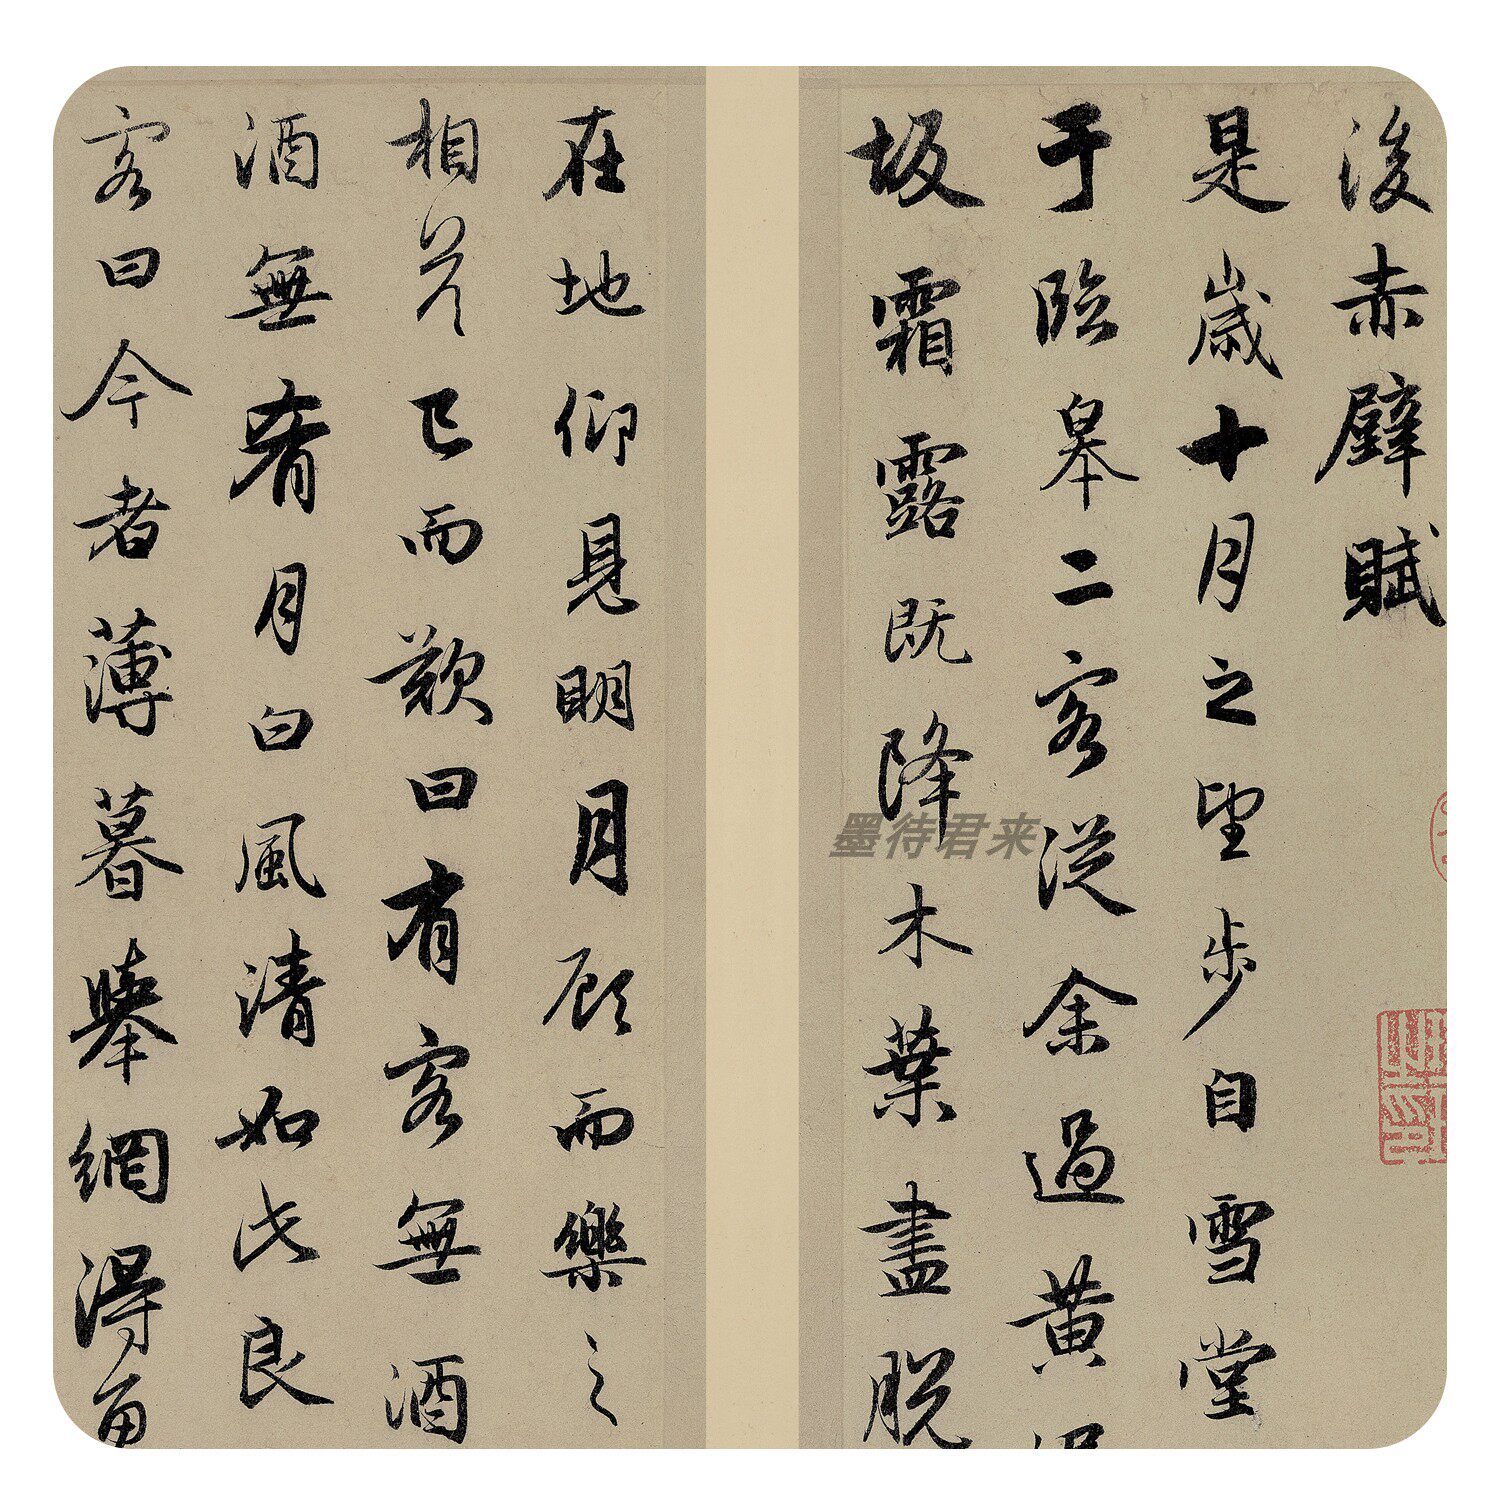 後赤壁賦
是歲十月之望步自雪堂
于臨皋二客從余過黃
坂霜露既降木葉盡脫
在地仰見明月顧而樂之
相答已而歎曰有客無酒
酒無肴月白風清如此良
客曰今者薄暮舉網得魚
墨待君来